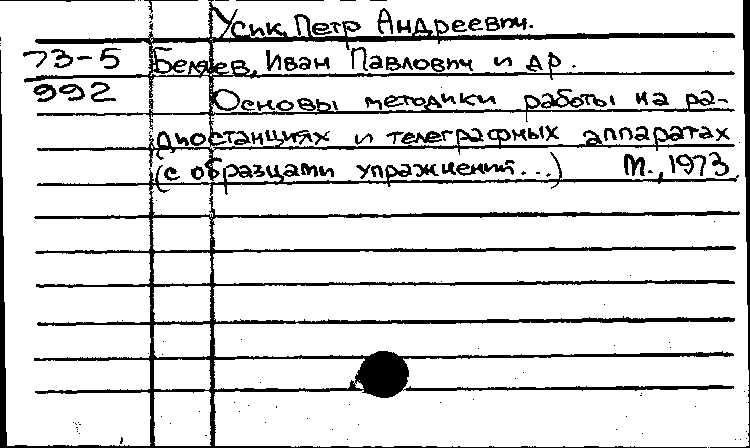 Усик, Петр Андреевич.
73-5 Беляев, Иван Павлович и др.
992 Основы методики работы на ра-
диостанциях и телеграфных аппаратах
(с образцами упражнений...) М., 1973